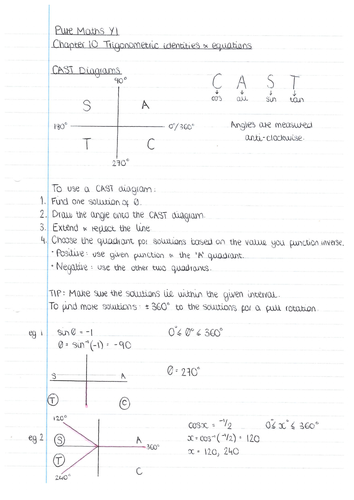 Pure Maths Y1
Chapter 10 Trigonometric identities & equations
CAST Diagrams
90°
C A S T
cos all sin tan
S A
180° 0/360°
T C
270°
Angles are measured
anti-clockwise.
To use a CAST diagram:
1. Find one solution of θ.
2. Draw the angle onto the CAST diagram.
3. Extend & reflect the line
4. Choose the quadrant for solutions based on the value you function inverse.
• Positive: use given function & the "A" quadrant.
• Negative: use the other two quadrants.
TIP: Make sure the solutions lie within the given interval.
To find more solutions: ± 360° to the solutions for a full rotation.
eg 1 sinθ = -1 0° ≤ θ° ≤ 360°
θ = sin⁻¹(-1) = -90
S A
θ = 270°
T C
eg 2
120°
S A
360°
T C
240°
cosx = -1/2 0 ≤ x° ≤ 360°
x = cos⁻¹(-1/2) = 120
x = 120, 240